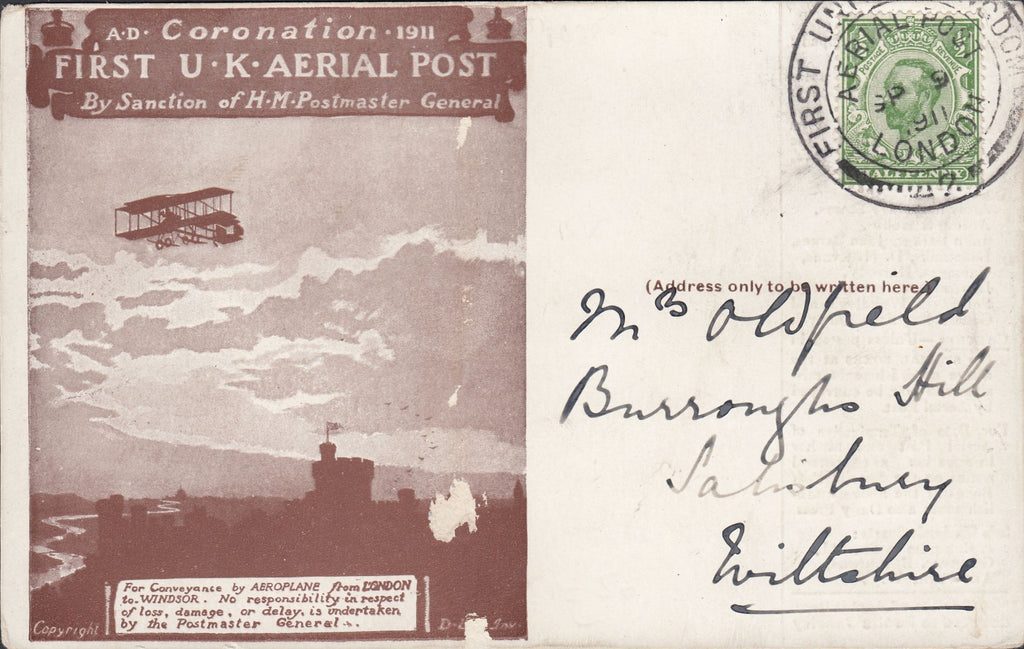 A·D· Coronation ·1911
FIRST U·K·AERIAL POST
By Sanction of H·M·Postmaster General
For Conveyance by AEROPLANE from LONDON
to WINDSOR. No responsibility in respect
of loss, damage, or delay, is undertaken
by the Postmaster General.
Copyright
Inv.
FIRST UNI
AERIAL POST
SP 9
1911
LONDON
2
POSTAGE REVENUE
HALFPENNY
(Address only to be written here)
Mrs Oldfield
Burroughs Hill
Salisbury
Wiltshire